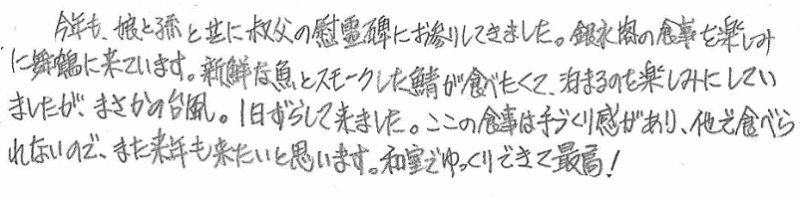 今年も、娘と孫と共に叔父の慰霊碑にお参りしてきました。銀水閣の食事を楽しみ
に舞鶴に来ています。新鮮な魚とスモークした鯖が食べたくて、泊まるのを楽しみにしてい
ましたが、まさかの台風。1日ずらして来ました。ここの食事は手づくり感があり、他で食べら
れないので、また来年も来たいと思います。和室でゆっくりできて最高!